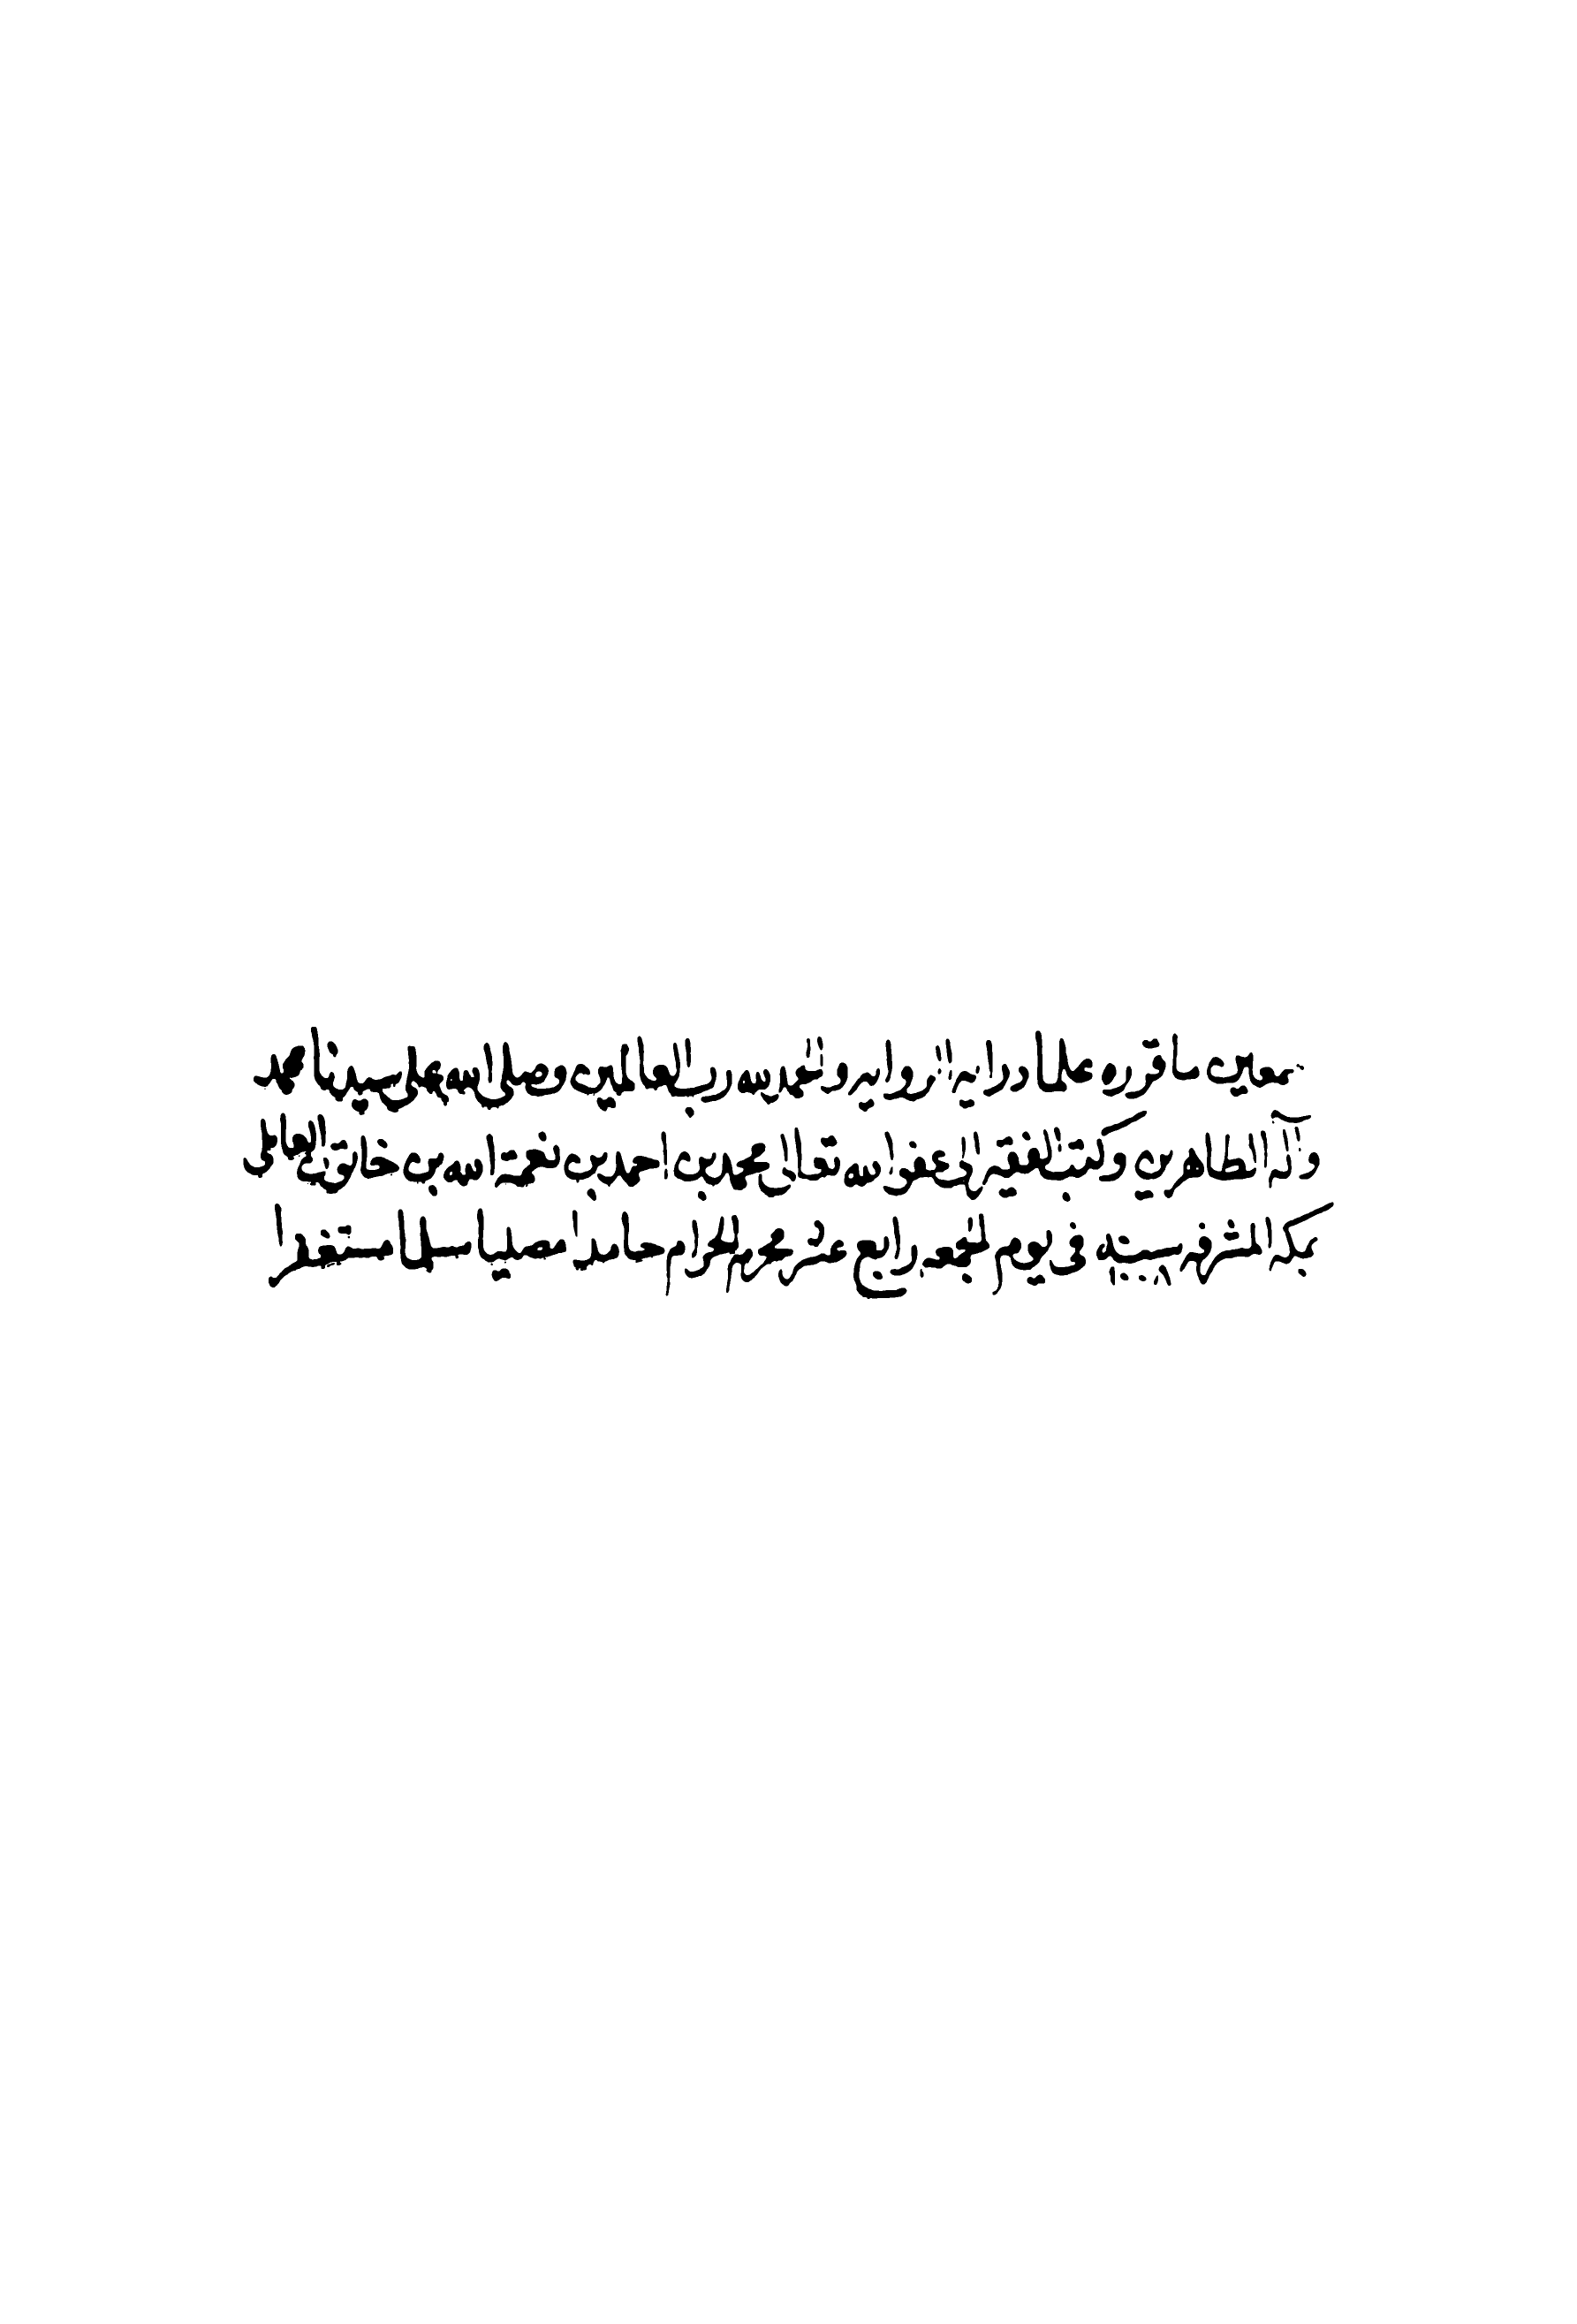 معين ما قرره علماء دراية الرواية والحمد لله رب العالمين وصلى الله على سيدنا محمد
وآله الطاهرين وكتب الفقير الى عفو الله تعالى محمد بن احمد بن نعمة الله بن خاتون العاملي
بمكة المشرفة في يوم الجمعه رابع عشر محرم الحرام حامدا مصليا مسلما مستغفرا